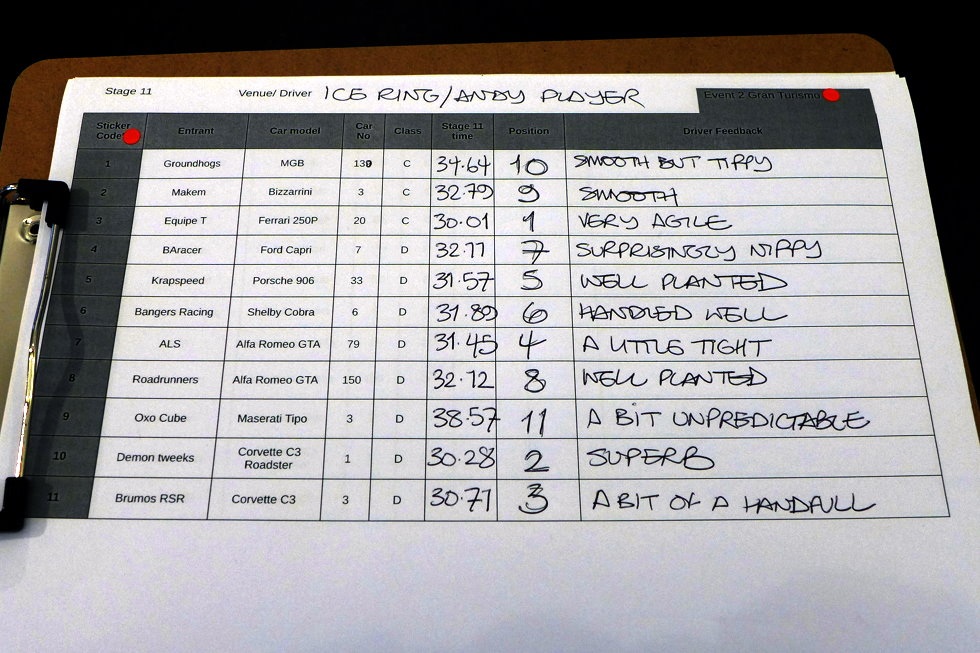 Stage 11 Venue/ Driver ICE RING/ANDY PLAYER Event 2 Gran Turismo
Sticker Code Entrant Car model Car No Class Stage 11 time Position Driver Feedback
1 Groundhogs MGB 139 C 34.64 10 SMOOTH BUT TIPPY
2 Makem Bizzarrini 3 C 32.79 9 SMOOTH
3 Equipe T Ferrari 250P 20 C 30.01 1 VERY AGILE
4 BAracer Ford Capri 7 D 32.11 7 SURPRISINGLY NIPPY
5 Krapspeed Porsche 906 33 D 31.57 5 WELL PLANTED
6 Bangers Racing Shelby Cobra 6 D 31.89 6 HANDLED WELL
7 ALS Alfa Romeo GTA 79 D 31.45 4 A LITTLE TIGHT
8 Roadrunners Alfa Romeo GTA 150 D 32.12 8 WELL PLANTED
9 Oxo Cube Maserati Tipo 3 D 38.57 11 A BIT UNPREDICTABLE
10 Demon tweeks Corvette C3 Roadster 1 D 30.28 2 SUPERB
11 Brumos RSR Corvette C3 3 D 30.71 3 A BIT OF A HANDFULL